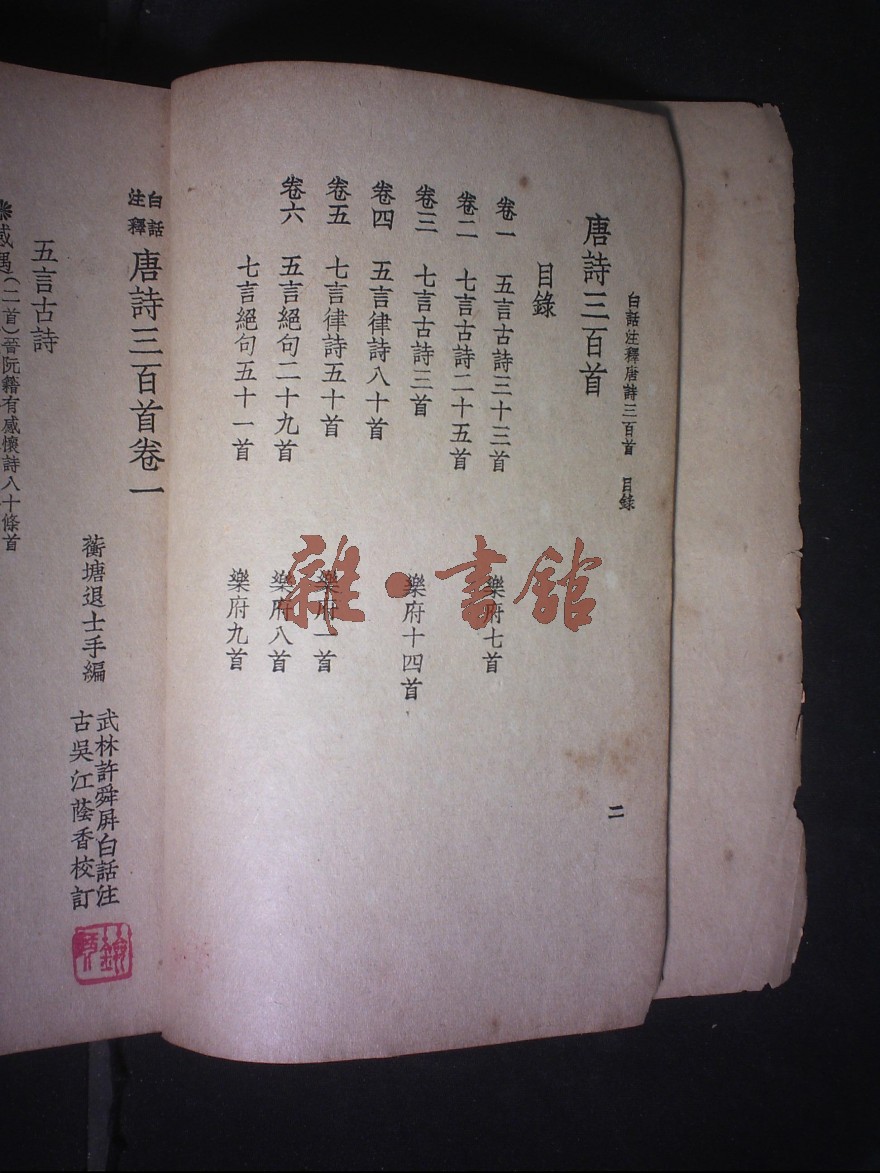 白話注釋唐詩三百首 目錄
二
唐詩三百首
目錄
卷一 五言古詩三十三首 樂府七首
卷二 七言古詩二十五首
卷三 七言古詩三首 樂府十四首
卷四 五言律詩八十首
卷五 七言律詩五十首 樂府一首
卷六 五言絕句二十九首 樂府八首
七言絕句五十一首 樂府九首
雜·書館
白話注釋 唐詩三百首卷一
蘅塘退士手編
武林許舜屏白話注
古吳江蔭香校訂
五言古詩
感遇(二首)晉阮籍有感懷詩八十條首